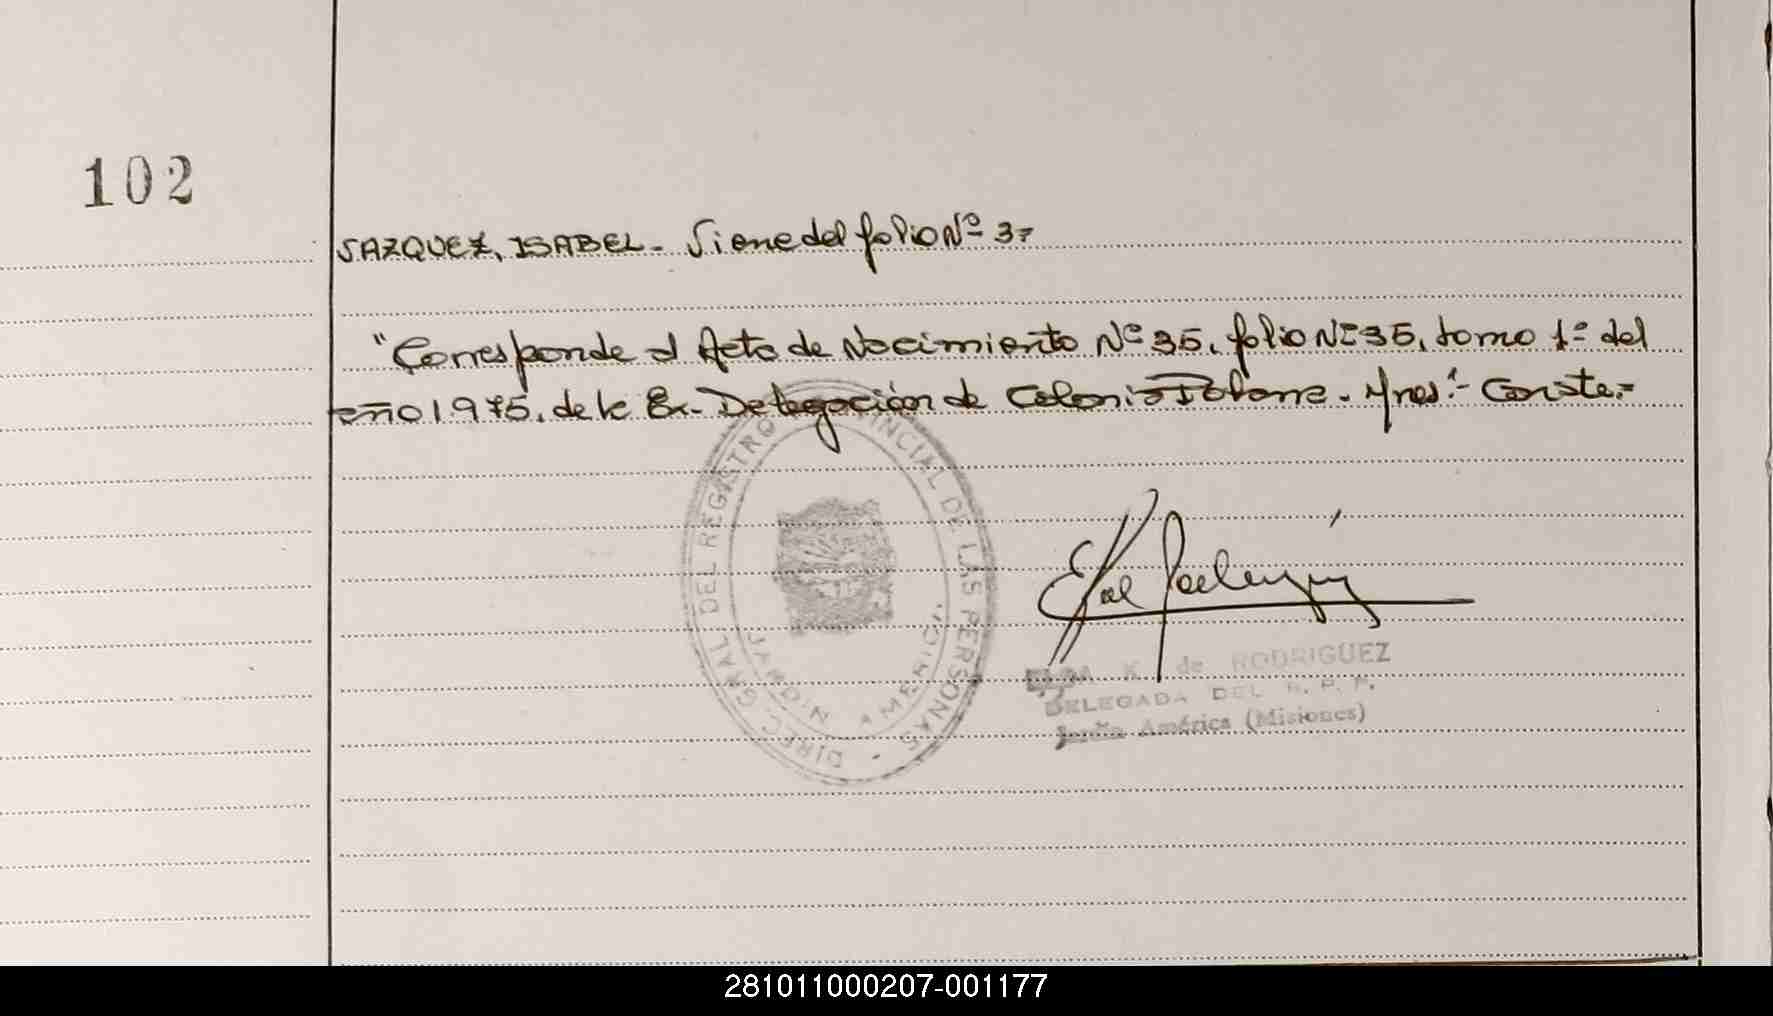 102
VAZQUEZ, ISABEL.- Viene del folio Nº 3=
"Corresponde al Acta de Nacimiento Nº 35, folio Nº 35, tomo 1º del
año 1975, de la Ex. Delegación de Colonia Mnes.- Conste.=
DIREC. GRAL DEL REGISTRO PROVINCIAL DE LAS PERSONAS
JARDIN AMERICA
K. de RODRIGUEZ
DELEGADA DEL R. P. P.
Jardín América (Misiones)
281011000207-001177